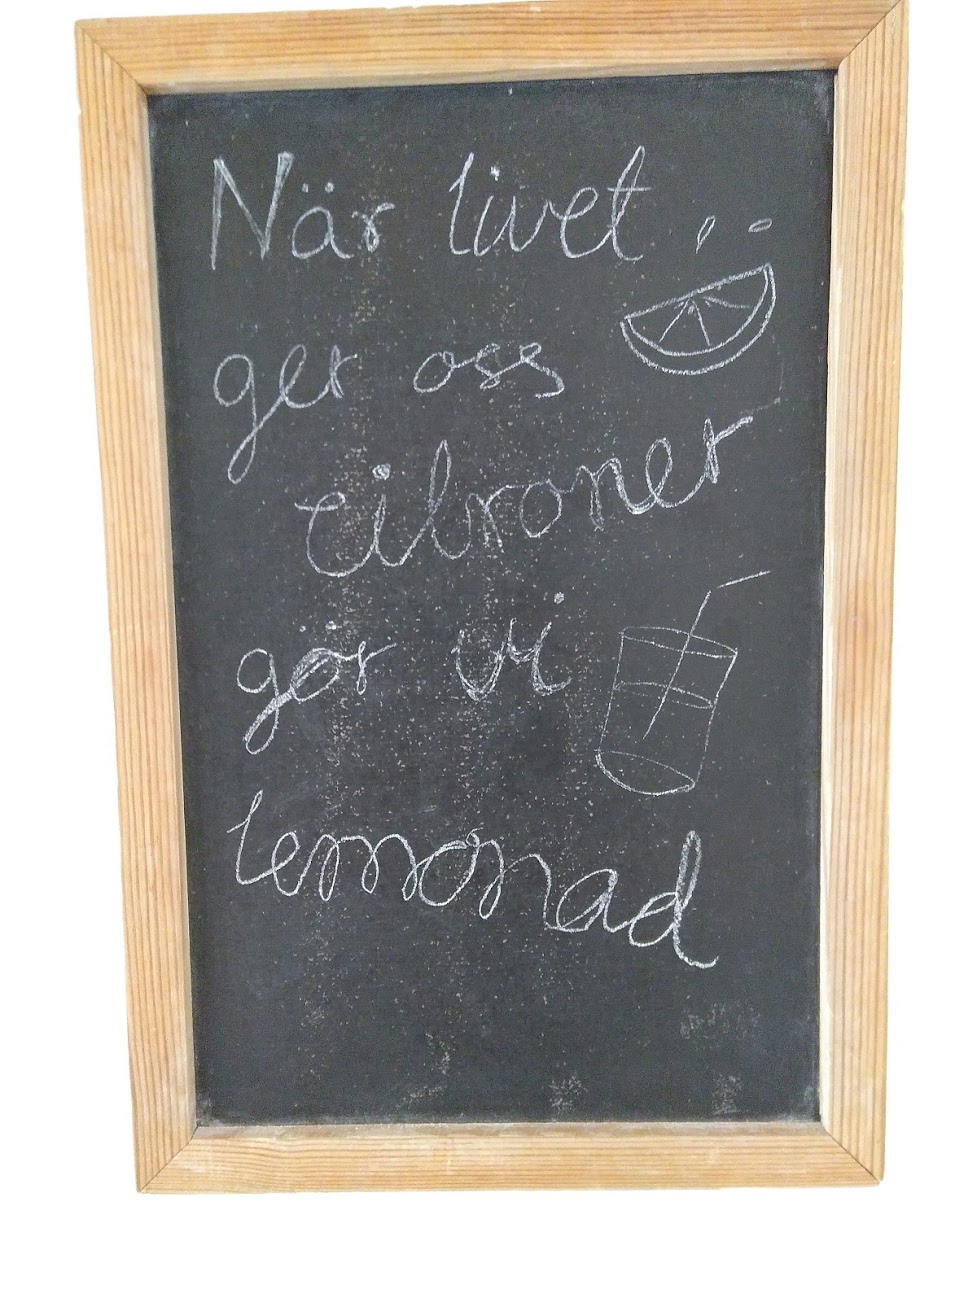 När livet
ger oss
citroner
gör vi
lemonad